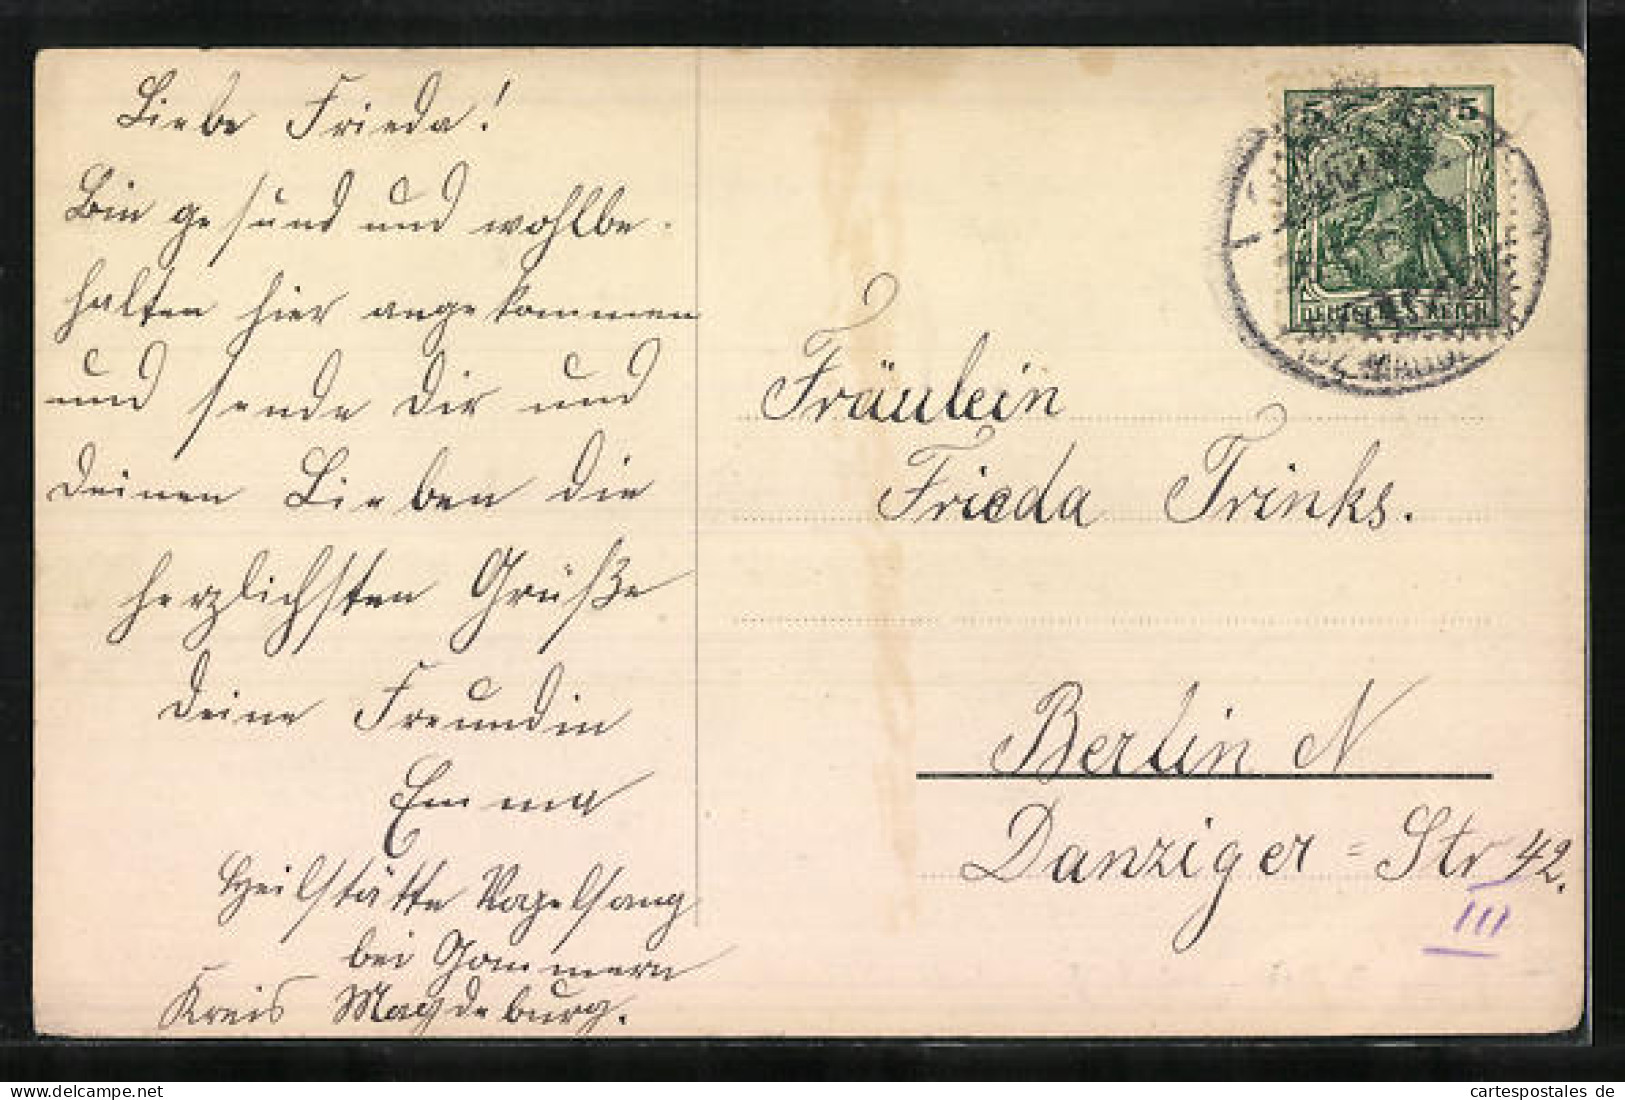 Liebe Frieda!
Bin gesund und wohlbe-
halten hier angekommen
und sende Dir und
Deinen Lieben die
herzlichsten Grüße
Deine Freundin
Emma
Heilstätte Vogelsang
bei Gommern
Kreis Magdeburg.
5 5
DEUTSCHES REICH
Fräulein
Frieda Trinks.
Berlin N
Danziger-Str 42.
III
cartespostales de